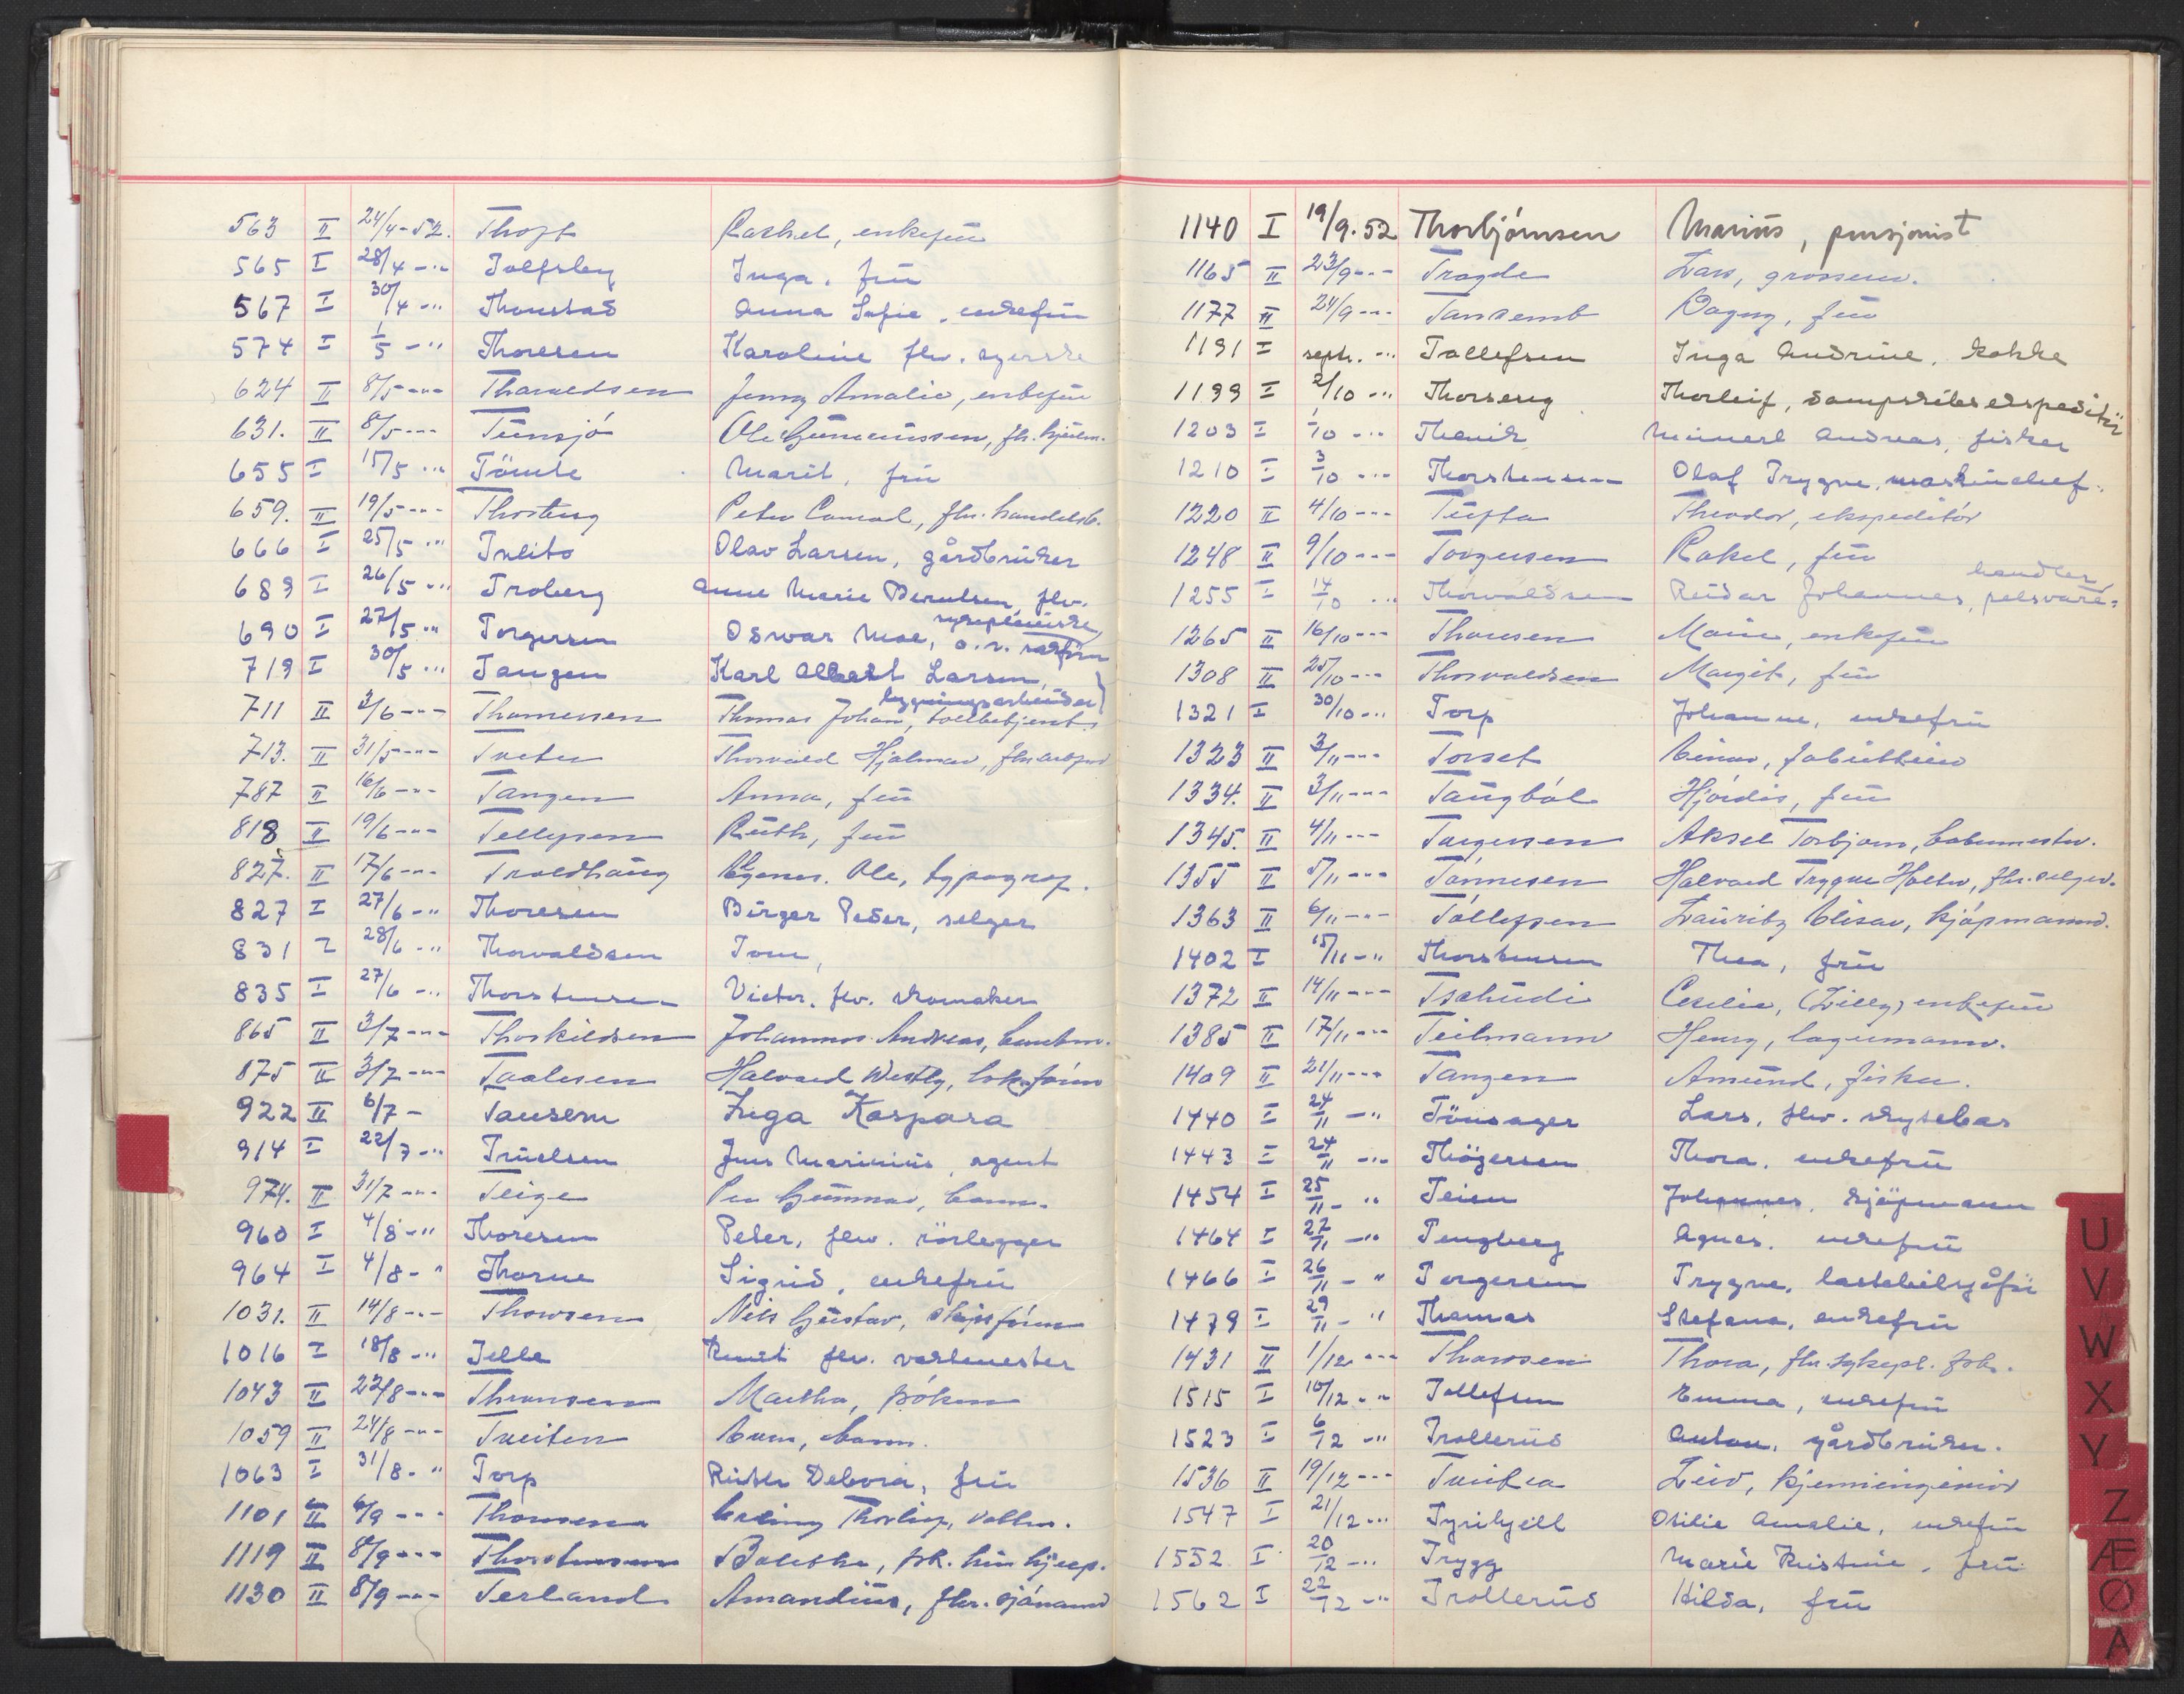 563 II 24/4-52. Thoft Rachel, enkefrü
565 I 28/4 -"- Tolfsby Inga, frü
567 I 30/4 -"- Thonstad Anna Sofie, enkefrü
574 I 1/5 -"- Thoresen Karoline flw. syerske
624 II 8/5 -"- Tharaldsen Jenny Amalie, enkefrü
631. II 8/5 -"- Tünsjø Ole Günerüssen, fhv.
655 I 15/5 -"- Tömte Marit, frü
659. II 19/5 -"- Peter Conrad, fhv. handelsb.
666 I 25/5 -"- Tveito Olav Larsen, gårdbrüker
689 I 26/5 -"- Troberg Anne Marie Berntsen, flv. sykepleierske
690 I 27/5 -"- Torgersen Osvar Moe, o.r. sakfører
719 I 30/5 -"- Tangen Karl Albert Larsen, bygningsarbeider
711 II 2/6 -"- Thomessen Thomas Johan, tollbetjent
713. II 31/5 -"- Tveter Thorvald Hjalmar,
787 II 16/6 -"- Tangen Anna, frü
818 II 19/6 -"- Tellefsen Rüth, frü
827. II 17/6 -"- Troldhaüg Ole, typograf.
827 I 27/6 -"- Thoresen Birger Peder, selger
831 I 28/6 -"- Thorvaldsen Tom,
835 I 27/6 -"- Thorstensen Victor, flv. skomaker
865 II 3/7 -"- Thorkildsen Johannes Andreas,
875 II 3/7 -"- Taalesen Halvard Westly,
922 II 6/7 - Tausem Inga Kaspara
914 I 22/7 -"- Truelsen Jens Marinius, agent
974. II 31/7 -"- Teige Per Günnar, barn.
960 I 4/8 -"- Thoresen Peter, flv. rörlegger
964 I 4/8 -"- Thorne Sigrid, enkefrü
1031. II 14/8 -"- Thowsen Nils Güstav,
1016 I 18/8 -"- Telle Knut flv. verkmester
1043 II 22/8 -"- Thronsen Martha, frøken
1059 II 24/8 -"- Tveiten barn.
1063 I 31/8 -"- Torp Rüth Debora, frü
1101 II 6/9 -"- Thomsen
1119 II 8/9 -"- Thorstensen
1130 II 8/9 -"- Terland Amandüs, fhv. sjømann
1140 I 19/9.52 Thorbjørnsen Mariüs, pensjonist
1165 II 23/9 -"- Tragde Lars, grosserer.
1177 II 24/9 -"- Tandemb Dagny, frü
1191 I septr. -"- Tollefsen Inga Andrine, kokke
1199 I 2/10 -"- Thorserg Thorleif, dampskibsekspeditör
1203 I 1/10 -"- Andreas, fisker
1210 I 3/10 -"- Thorstensen Olaf Trygve, maskinchef.
1220 II 4/10 -"- Tüfta Theodor, ekspeditør
1248 II 9/10 -"- Torgersen Rakel, frü
1255 I 14/10 -"- Thorvaldsen Reidar Johannes, pelsvare-handler
1265 II 16/10 -"- Thomsen Marie, enkefrü
1308 II 25/10 -"- Thorvaldsen Margit, frü
1321 I 30/10 -"- Torp Johanne, enkefrü
1323 II 3/11 -"- Torset Einar,
1334. II 3/11 -"- Taügbøl Hjørdis, frü
1345. II 4/11 -"- Torgersen Aksel Torbjørn, banemester.
1355 II 5/11 -"- Tønnesen Halvard Trygve Holter, fhv. selger.
1363 II 6/11 -"- Tollefsen Laüritz Elisar, kjøpmann.
1402 I 15/11 -"- Thorstensen Thea, frü
1372 II 14/11 -"- Tschüdi Cecilie, (Lilly) enkefrü
1385 II 17/11 -"- Teilmann Henry, lagermann.
1409 II 21/11 -"- Tangen Amünd, fisker.
1440 I 24/11 -"- Tönsager Lars, flv. skysebas
1443 I 24/11 -"- Thögersen Thora, enkefrü
1454 I 25/11 -"- Teien Johannes, kjöpmann
1464 I 27/11 -"- Tengberg Agnes, enkefrü
1466 I 26/11 -"- Torgersen Trygve, lastebilsjåför
1479 I 29/11 -"- Thomas Stefana, enkefrü
1431 II 1/12 -"- Thorsen Thora, fhv. sykepl. frk.
1515 I 10/12 -"- Tollefsen Emma, enkefrü
1523 I 6/12 -"- Trollerüd Anton, gårdbrüker.
1536 II 19/12 -"- Leiv, kjemiingeniør
1547 I 21/12 -"- Tyrihjell Otilie Amalie, enkefrü
1552 I 20/12 -"- Trygg Marie Kristine, frü
1562 I 22/12 -"- Trollerüd Hilda, frü
U
V
W
X
Y
Z
Æ
Ø
A